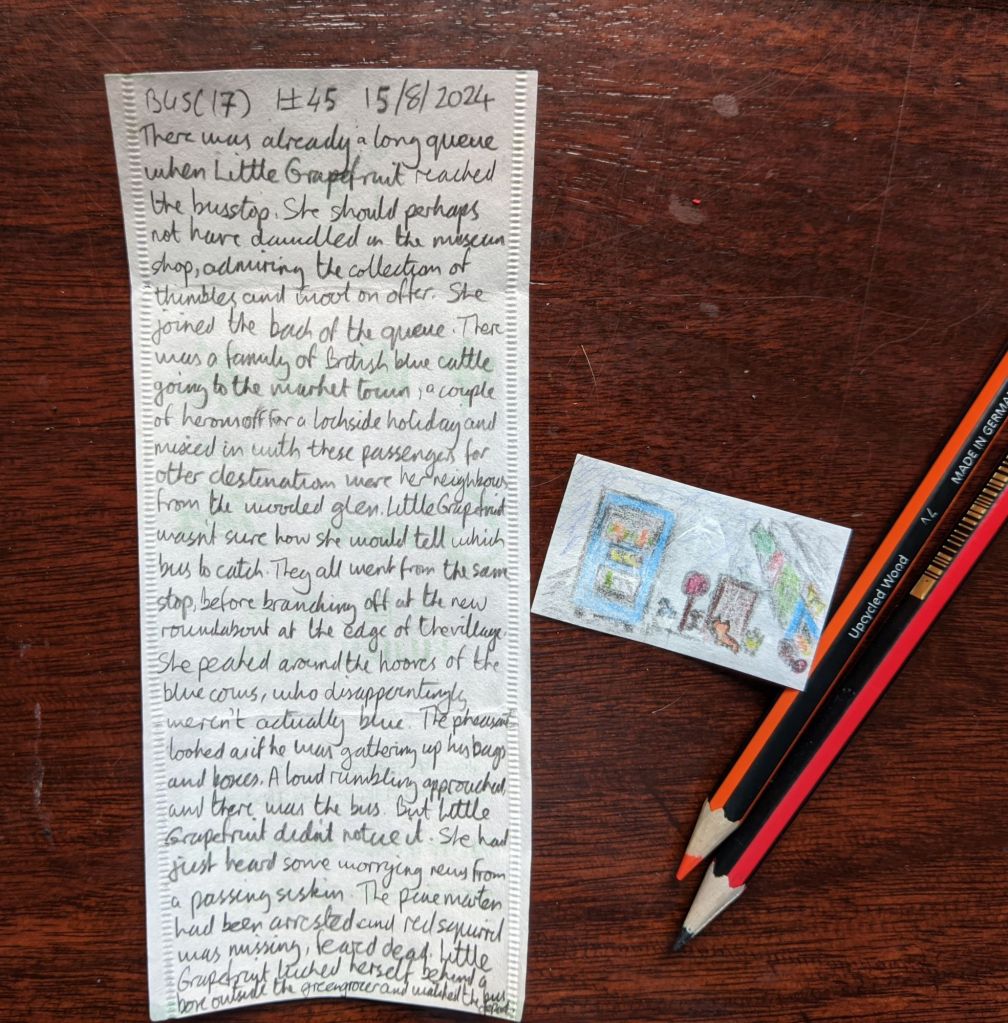 BUS(17) 1±45 15/8/2024
There was already a long queue
when Little Grapefruit reached
the busstop. She should perhaps
not have dawdled in the museum
shop, admiring the collection of
thimbles and wool on offer. She
joined the back of the queue. There
was a family of British blue cattle
going to the market town, a couple
of herons off for a lochside holiday and
mixed in with these passengers for
other destinations were her neighbours
from the wooded glen. Little Grapefruit
wasn't sure how she would tell which
bus to catch. They all went from the same
stop, before branching off at the new
roundabout at the edge of the village.
She peaked around the hooves of the
blue cows, who disappointingly
weren't actually blue. The pheasant
looked as if he was gathering up his bags
and boxes. A loud rumbling approached,
and there was the bus. But Little
Grapefruit didn't notice it. She had
just heard some worrying news from
a passing siskin. The pine marten
had been arrested and red squirrel
was missing, feared dead. Little
Grapefruit tucked herself behind a
box outside the greengrocer and watched the bus
depart.
MADE IN GERMA
14
Upcycled Wood